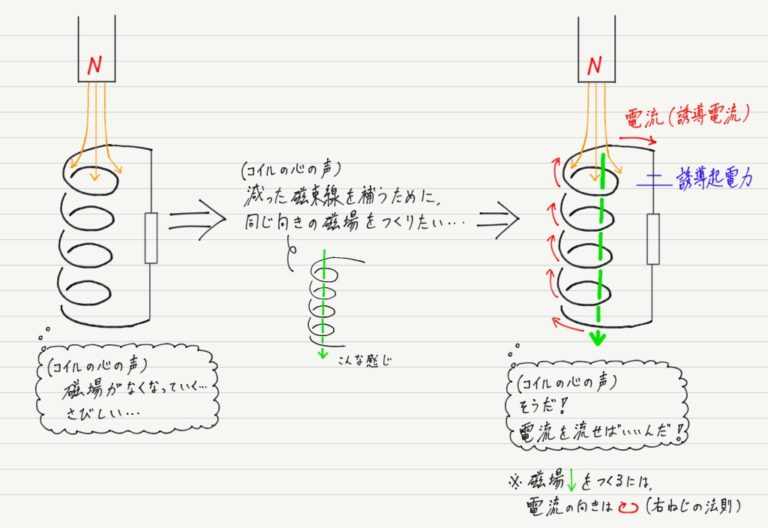 N
(コイルの心の声)
磁場がなくなっていく…
さびしい…
(コイルの心の声)
減った磁束線を補うために,
同じ向きの磁場をつくりたい…
こんな感じ
N
電流(誘導電流)
誘導起電力
(コイルの心の声)
そうだ!
電流を流せばいいんだ!
※ 磁場↓をつくるには,
電流の向きは (右ねじの法則)